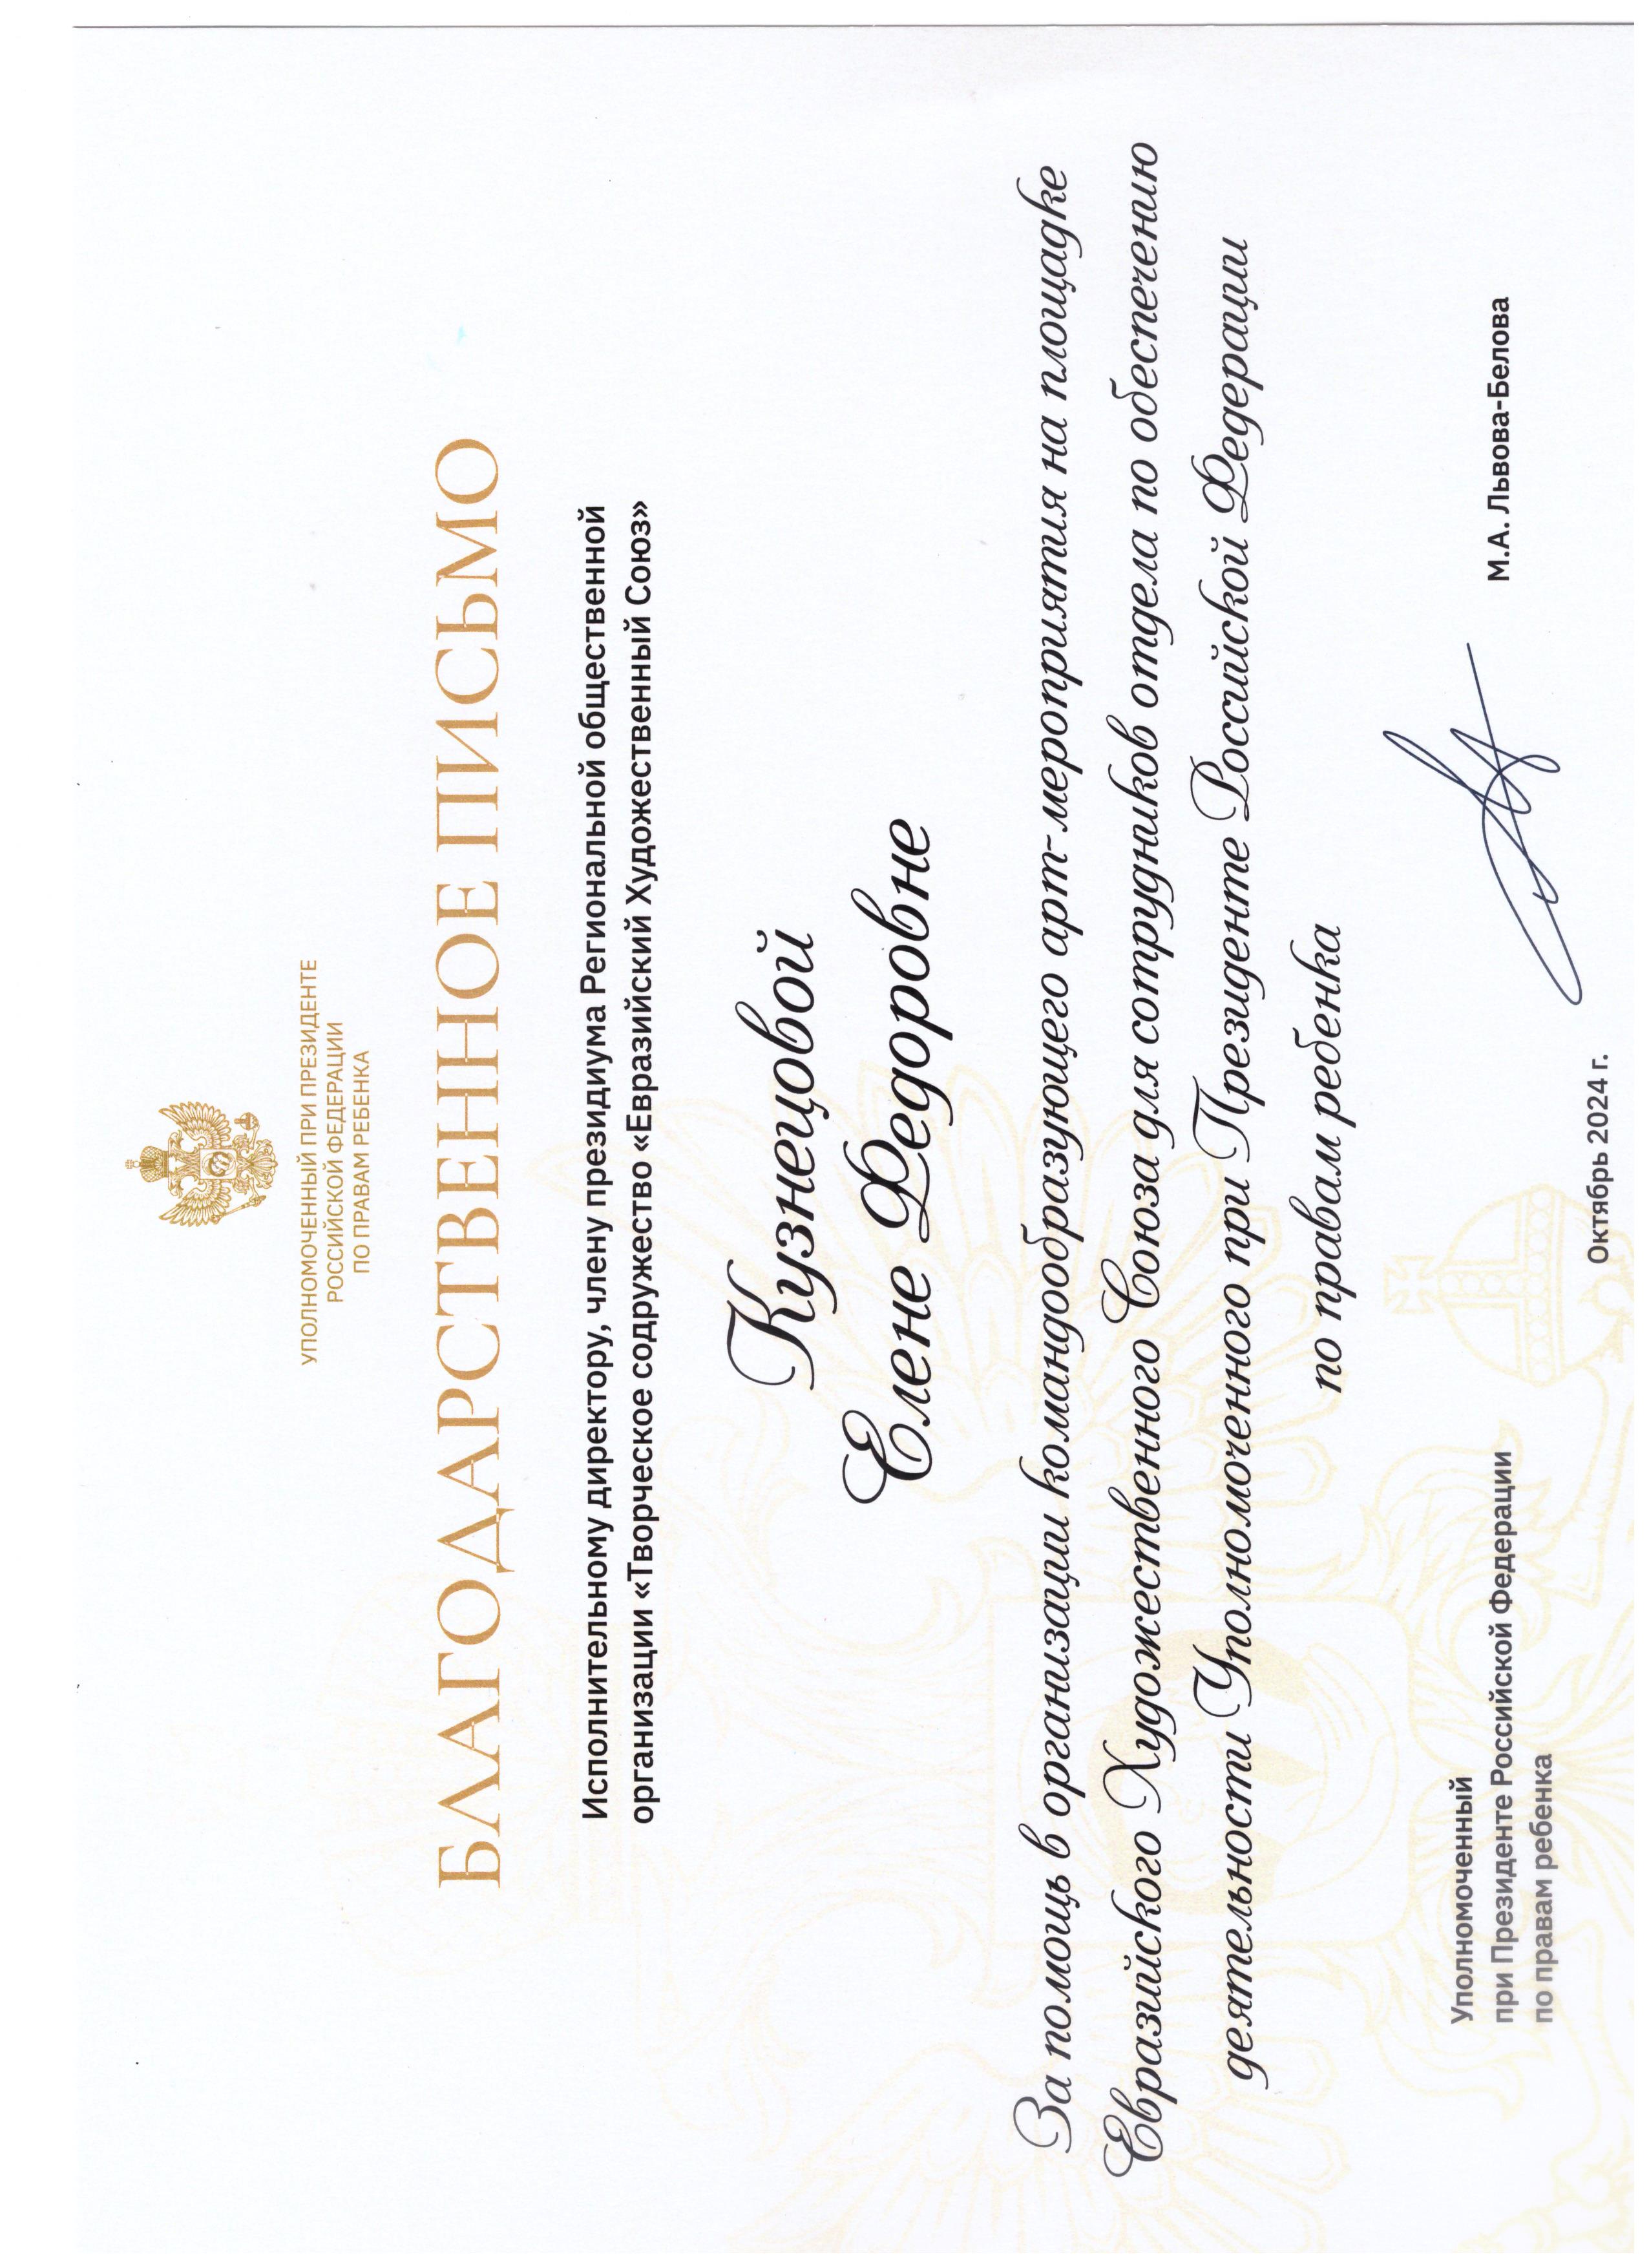 УПОЛНОМОЧЕННЫЙ ПРИ ПРЕЗИДЕНТЕ
РОССИЙСКОЙ ФЕДЕРАЦИИ
ПО ПРАВАМ РЕБЕНКА
БЛАГОДАРСТВЕННОЕ ПИСЬМО
Исполнительному директору, члену президиума Региональной общественной
организации «Творческое содружество «Евразийский Художественный Союз»
Кузнецовой
Елене Федоровне
За помощь в организации командообразующего арт-мероприятия на площадке
Евразийского Художественного Союза для сотрудников отдела по обеспечению
деятельности Уполномоченного при Президенте Российской Федерации
по правам ребенка
Уполномоченный
при Президенте Российской Федерации
по правам ребенка
М.А. Львова-Белова
Октябрь 2024 г.